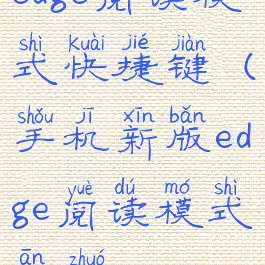 edge阅读模
shì kuài jié jiàn
式快捷键（
shǒu jī xīn bǎn
手机新版ed
yuè dú mó shì
ge阅读模式
ān zhuó